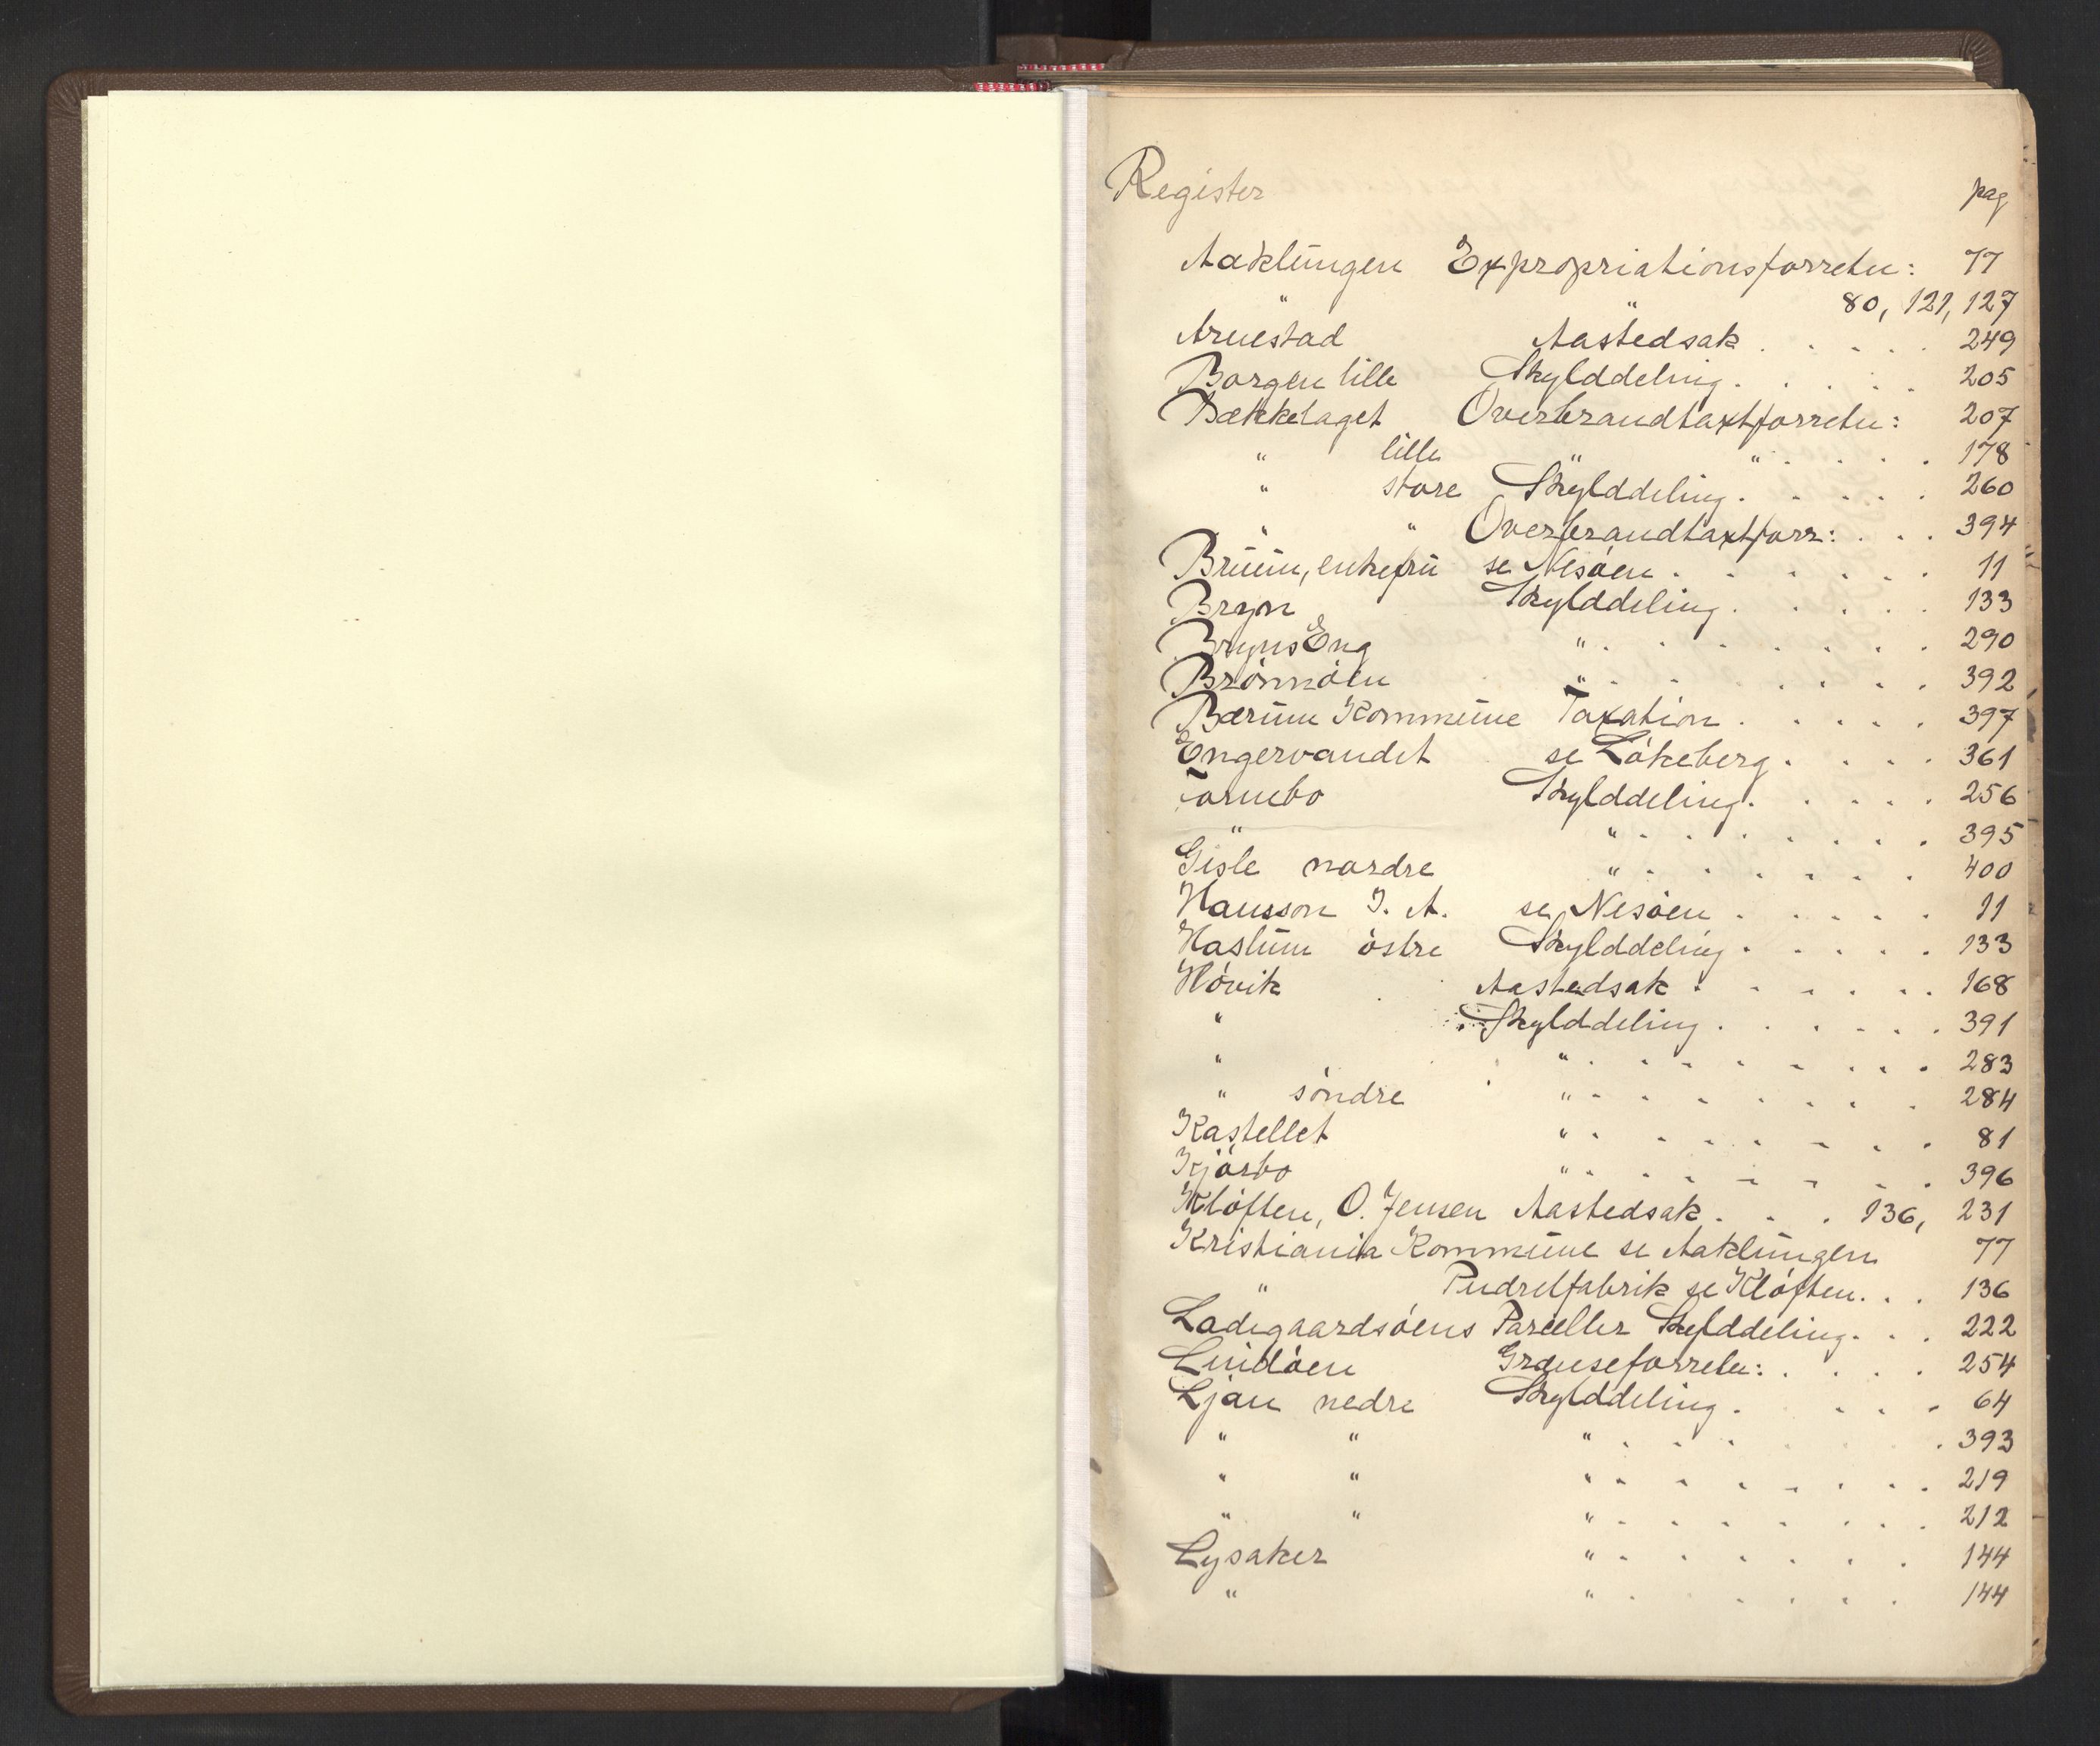 Register pag
Aaklungen Expropriationsforretn: 77
" " 80, 121, 127
Arnestad Aastedsak . . . . . 249
Borgen lille Skylddeling . . . . . 205
Bækkelaget Overbrandtaxtforretn: 207
" lille " " . . . . 178
" store Skylddeling . . . . . 260
" " Overbrandtaxtforr: . . . 394
Bruun, enkefru se Nesöen . . . . . . 11
Bryn Skylddeling . . . . . 133
Bryns Eng " . . . . . . . 290
Brönnöen " . . . . . . . 392
Bærum Kommune Taxation . . . . . 397
Engervandet se Lökeberg . . . . 361
Fornebo Skylddeling . . . . . 256
" " . . . . . . . 395
Gisle nordre " . . . . . . 400
Hansson I. A. se Nesöen . . . . . 11
Haslum östre Skylddeling . . . . . 133
Hövik Aastedsak . . . . . . 168
" Skylddeling . . . . . . 391
" " . . . . . . . . 283
" söndre " . . . . . . . 284
Kastellet " . . . . . . . 81
Kjörbo " . . . . . . . 396
Klöften, O. Jensen Aastedsak . . . 136, 231
Kristiania Kommune se Aaklungen 77
" Pudretfabrik se Klöften . . . 136
Ladegaardsöens Parceller Skylddeling . . . 222
Lindöen Grænseforretn: . . . . 254
Ljan nedre Skylddeling . . . . 64
" " " . . . . 393
" " " . . . . . . . 219
" " " . . . . . . . 212
Lysaker " . . . . . . 144
" " . . . . . . 144